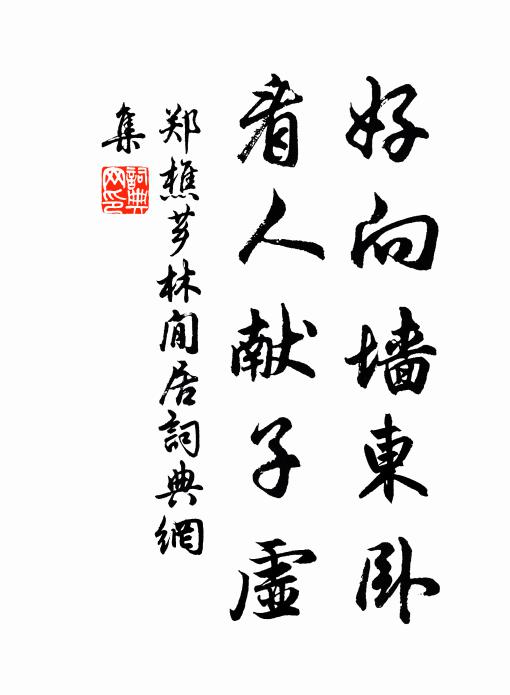 好向墙東卧
看人献子虚
郑樵芗林閒居詞典網
集
詞典
网印